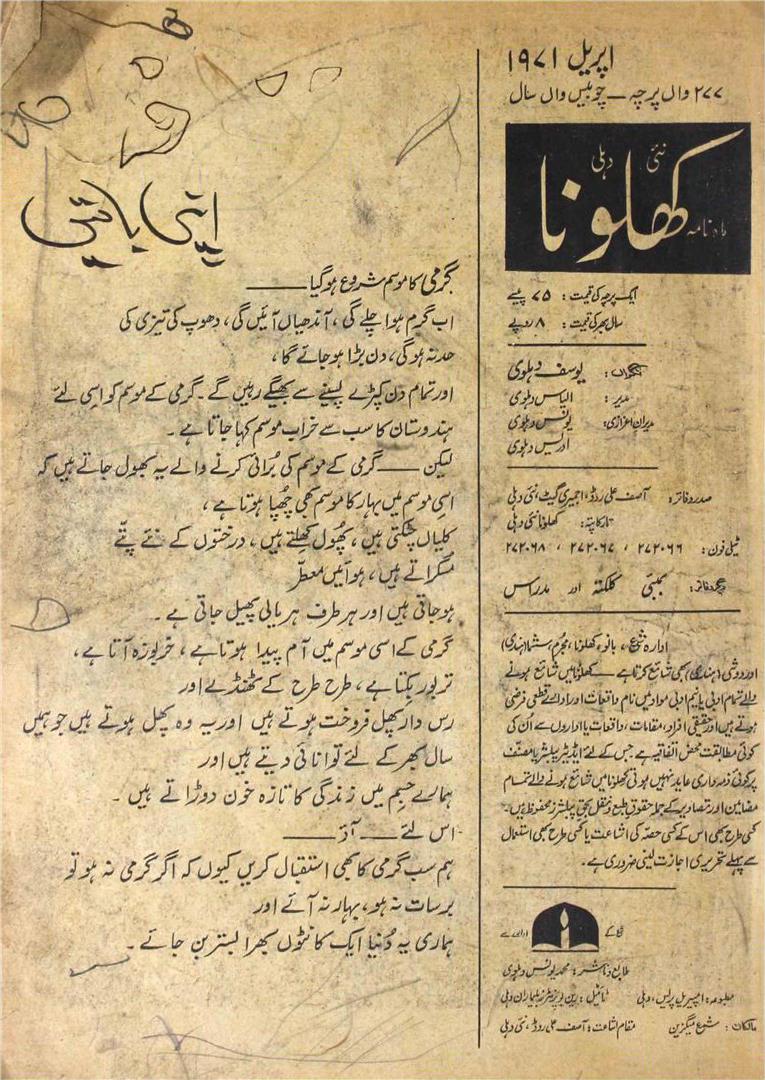 اپریل ۱۹۷۱
۲۷۷ واں پرچہ — چوبیس واں سال
ماہ نامہ کھلونا نئی دہلی
ایک پرچہ کی قیمت : ۷۵ پیسے
سال بھر کی قیمت : ۸ روپے
نگراں : یوسف دہلوی
مدیر : الیاس دہلوی
مدیران اعزازی : یونس دہلوی
ادریس دہلوی
صدر دفاتر : آصف علی روڈ، اجمیری گیٹ، نئی دہلی
تار کا پتہ : کھلونا نئی دہلی
ٹیلی فون : ۲۷۲۰۶۶ ، ۲۷۲۰۶۷ ، ۲۷۲۰۶۸
دیگر دفاتر : بمبئی کلکتہ اور مدراس
ادارہ شمع، بانو، کھلونا، مجرم، سشما (ہندی)
اور دوشی (ہندی) بھی شائع کرتا ہے — کھلونا میں شائع ہونے
والے تمام ادبی یا نیم ادبی مواد میں نام واقعات اور ادارے قطعی فرضی
ہوتے ہیں اور حقیقی افراد، مقامات، واقعات یا اداروں سے اُن کی
کوئی مطابقت محض اتفاقیہ ہے جس کے لئے ایڈیٹر پبلشر یا مصنف
پر کوئی ذمہ داری عاید نہیں ہوتی کھلونا میں شائع ہونے والے تمام
مضامین اور تصاویر کے جملہ حقوق طبع و نقل بحق پبلشرز محفوظ ہیں۔
کسی طرح بھی اس کے کسی حصہ کی اشاعت یا کسی طرح بھی استعمال
سے پہلے تحریری اجازت لینی ضروری ہے۔
شمع کے ادارے سے
طابع و ناشر : محمد یونس دہلوی
مطبوعہ : امپیریل پریس، دہلی ٹائیٹل : پرنٹرز بلیماران دہلی
مالکان : شمع میگزین مقام اشاعت : آصف علی روڈ، نئی دہلی
اپنی باتیں
گرمی کا موسم شروع ہوگیا —
اب گرم ہوا چلے گی، آندھیاں آئیں گی، دھوپ کی تیزی کی
حد نہ ہوگی، دن بڑا ہو جائے گا،
اور تمام دن کپڑے پسینے سے بھیگے رہیں گے۔ گرمی کے موسم کو اسی لئے
ہندوستان کا سب سے خراب موسم کہا جاتا ہے۔
لیکن — گرمی کے موسم کی بُرائی کرنے والے یہ بھول جاتے ہیں کہ
اسی موسم میں بہار کا موسم بھی چھپا ہوتا ہے،
کلیاں چٹکتی ہیں، پھول کھلتے ہیں، درختوں کے نئے پتّے
مُسکراتے ہیں، ہوائیں معطّر
ہوجاتی ہیں اور ہر طرف ہریالی پھیل جاتی ہے۔
گرمی کے اسی موسم میں آم پیدا ہوتا ہے، خربوزہ آتا ہے،
تربوز بکتا ہے، طرح طرح کے ٹھنڈے اور
رس دار پھل فروخت ہوتے ہیں اور یہ وہ پھل ہوتے ہیں جو ہمیں
سال بھر کے لئے توانائی دیتے ہیں اور
ہمارے جسم میں زندگی کا تازہ خون دوڑاتے ہیں۔
اس لئے — آؤ —
ہم سب گرمی کا بھی استقبال کریں کیوں کہ اگر گرمی نہ ہو تو
برسات نہ ہو، بہار نہ آئے اور
ہماری یہ دُنیا ایک کانٹوں بھرا بستر بن جائے۔